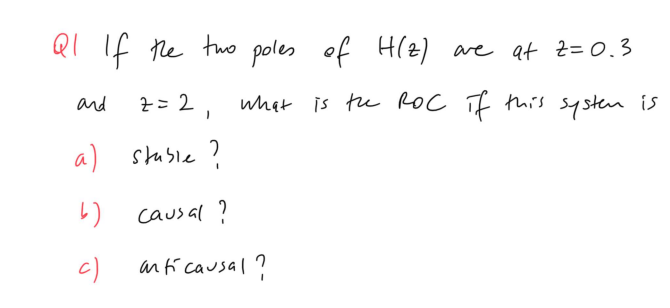 Q1 If the two poles of H(z) are at z=0.3
and z=2, what is the ROC if this system is
a) stable?
b) causal?
c) anticausal?